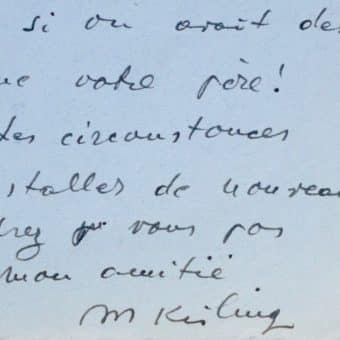 si on avait des
votre père!
les circonstances
staller de nouveau
vous pas
mon amitié
M Kisling